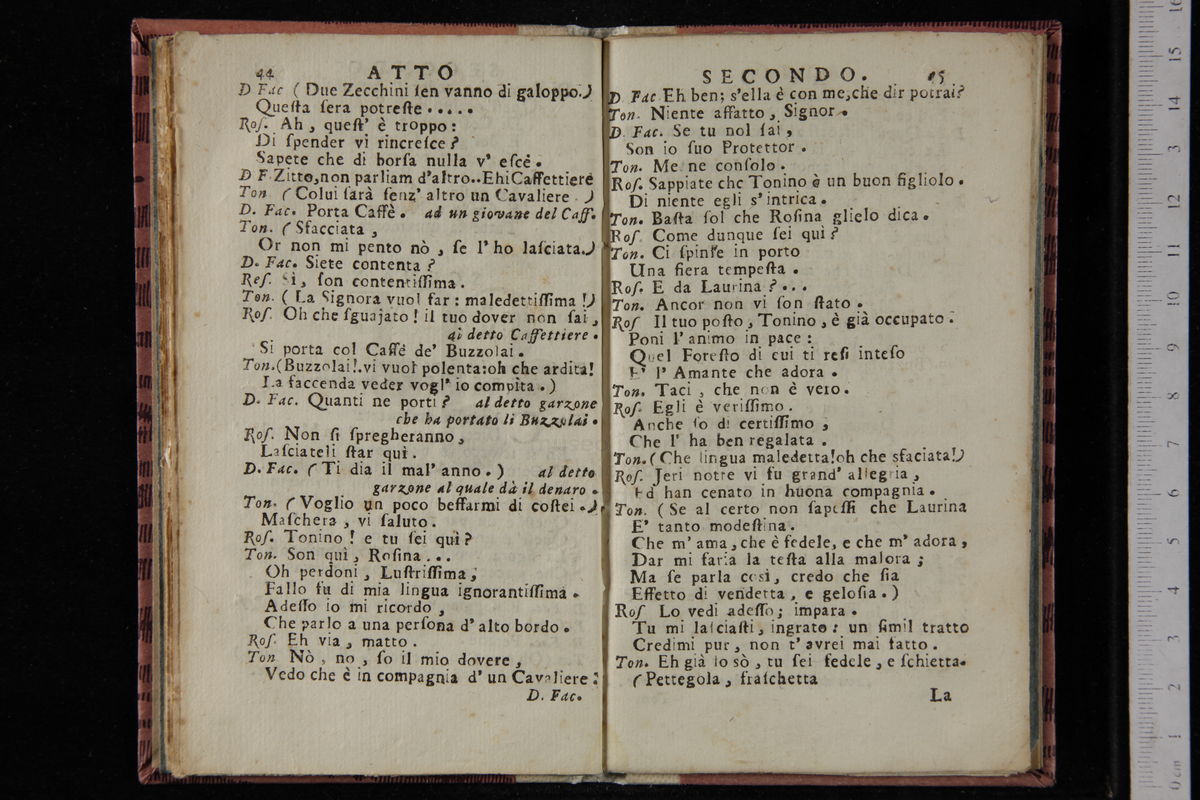 44 ATTO
D Fac ( Due Zecchini ſen vanno di galoppo.)
Queſta ſera potreſte . . . . .
Roſ. Ah , queſt' è troppo :
Di ſpender vi rincreſce ?
Sapete che di borſa nulla v' eſce .
D F. Zitto,non parliam d'altro..Ehi Caffettiere
Ton ( Colui ſarà ſenz' altro un Cavaliere . )
D. Fac. Porta Caffè . ad un giovane del Caff.
Ton. ( Sfacciata ,
Or non mi pento nò , ſe l' ho laſciata.)
D. Fac. Siete contenta ?
Roſ. Sì, ſon contentiſſima .
Ton. ( La Signora vuol far : maledettiſſima !)
Roſ. Oh che ſguajato ! il tuo dover non ſai ,
al detto Caffettiere .
Si porta col Caffé de' Buzzolai .
Ton.(Buzzolai!.vi vuol polenta:oh che ardita!
La faccenda veder vogl' io compita . )
D. Fac. Quanti ne porti ? al detto garzone
che ha portato li Buzzolai .
Roſ. Non ſi ſpregheranno ,
Laſciateli ſtar quì .
D. Fac. ( Ti dia il mal' anno . ) al detto
garzone al quale dà il denaro .
Ton. ( Voglio un poco beffarmi di coſtei .)
Maſchera , vi ſaluto .
Roſ. Tonino ! e tu ſei quì ?
Ton. Son quì , Roſina . . .
Oh perdoni , Luſtriſſima ;
Fallo fu di mia lingua ignorantiſſima .
Adeſſo io mi ricordo ,
Che parlo a una perſona d' alto bordo .
Roſ. Eh via , matto .
Ton Nò , no , ſo il mio dovere ,
Vedo che è in compagnia d' un Cavaliere :
D. Fac.
SECONDO. 45
D Fac Eh ben; s'ella è con me,che dir potrai?
Ton. Niente affatto , Signor .
D. Fac. Se tu nol ſai ,
Son io ſuo Protettor .
Ton. Me ne conſolo .
Roſ. Sappiate che Tonino è un buon figliolo .
Di niente egli s' intrica .
Ton. Baſta ſol che Roſina glielo dica .
Roſ. Come dunque ſei quì ?
Ton. Ci ſpinſe in porto
Una fiera tempeſta .
Roſ. E da Laurina ? . . .
Ton. Ancor non vi ſon ſtato .
Roſ Il tuo poſto , Tonino , è già occupato .
Poni l' animo in pace :
Quel Foreſto di cui ti reſi inteſo
E' l' Amante che adora .
Ton. Taci , che non è vero .
Roſ. Egli è veriſſimo .
Anche ſo di certiſſimo ,
Che l' ha ben regalata .
Ton. ( Che lingua maledetta!oh che sfaciata!)
Roſ. Jeri notte vi fu grand' allegria ,
Ed han cenato in buona compagnia .
Ton. ( Se al certo non ſapeſſi che Laurina
E' tanto modeſtina .
Che m' ama, che è fedele, e che m' adora ,
Dar mi faria la teſta alla malora ;
Ma ſe parla così , credo che ſia
Effetto di vendetta , e geloſia . )
Roſ Lo vedi adeſſo ; impara .
Tu mi laſciaſti , ingrato : un ſimil tratto
Credimi pur , non t' avrei mai fatto .
Ton. Eh già io sò , tu ſei fedele , e ſchietta.
( Pettegola , fraſchetta
La